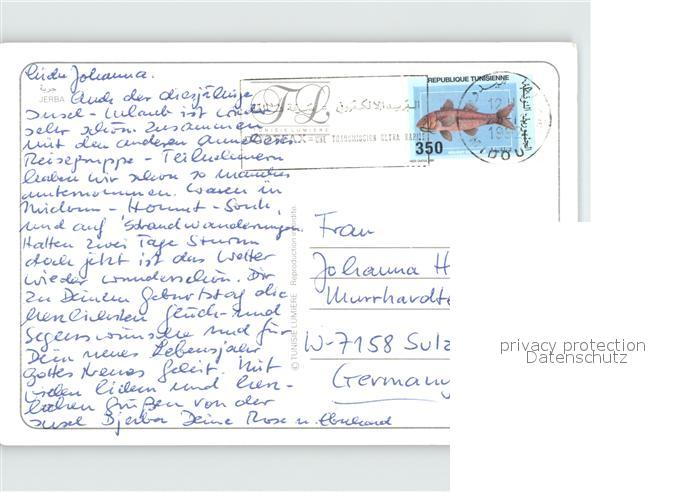 Liebe Johanna.
جربة
JERBA
Auch der diesjährige
Insel-Urlaub ist wieder
sehr schön. Zusammen
mit den anderen
Reisegruppe-Teilnehmern
haben wir schon so manches
unternommen. Waren in
Midoun-Houmt-Souk,
und auf Strandwanderungen.
Hatten zwei Tage Sturm
doch jetzt ist das Wetter
wieder wunderschön. Dir
zu Deinem Geburtstag die
herzlichsten Glück- und
Segenswünsche und für
Dein neues Lebensjahr
Gottes treues Geleit. Mit
vielen lieben und herz-
lichen Grüßen von der
Insel Djerba Deine Rose u. Ekkehard
© TUNISIE LUMIERE Reproduction interdite
TL
TUNISIE LUMIERE
UNE TRANSMISSION ULTRA RAPIDE
REPUBLIQUE TUNISIENNE
350
12
MIDOUN
Frau
Johanna H
Murrhardte
W-7158 Sulz
Germany
privacy protection
Datenschutz